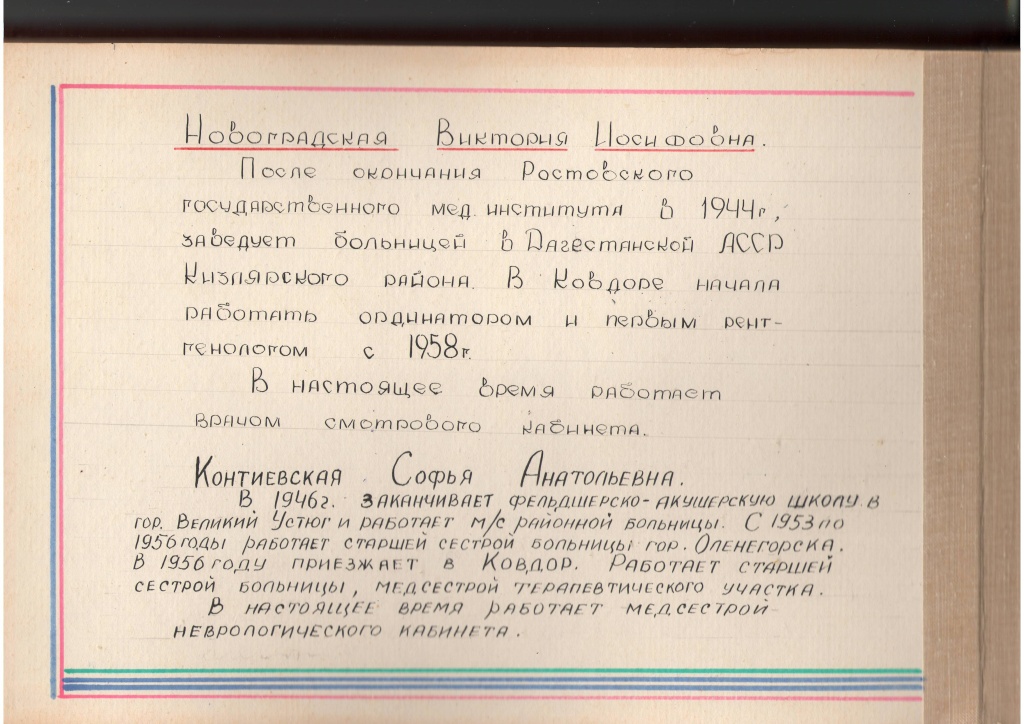 Новоградская Виктория Иосифовна.
После окончания Ростовского
государственного мед. института в 1944г,
заведует больницей в Дагестанской АССР
Кизлярского района. В Ковдоре начала
работать ординатором и первым рент-
генологом с 1958г.
В настоящее время работает
врачом смотрового кабинета.
Контиевская Софья Анатольевна.
В 1946г. заканчивает фельдшерско-акушерскую школу в
гор. Великий Устюг и работает м/с районной больницы. С 1953 по
1956 годы работает старшей сестрой больницы гор. Оленегорска.
В 1956 году приезжает в Ковдор. Работает старшей
сестрой больницы, медсестрой терапевтического участка.
В настоящее время работает медсестрой
неврологического кабинета.